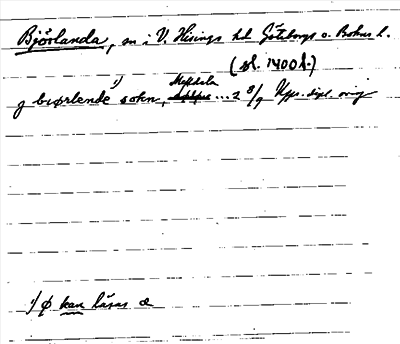 Björlanda, sn i V. Hisings hd Göteborgs o. Bohus l.
(sl. 1400 t.)
j biørlende 1) sokn, ... 2 8/9 Upps. dipl. orig
1) ø kan läsas æ